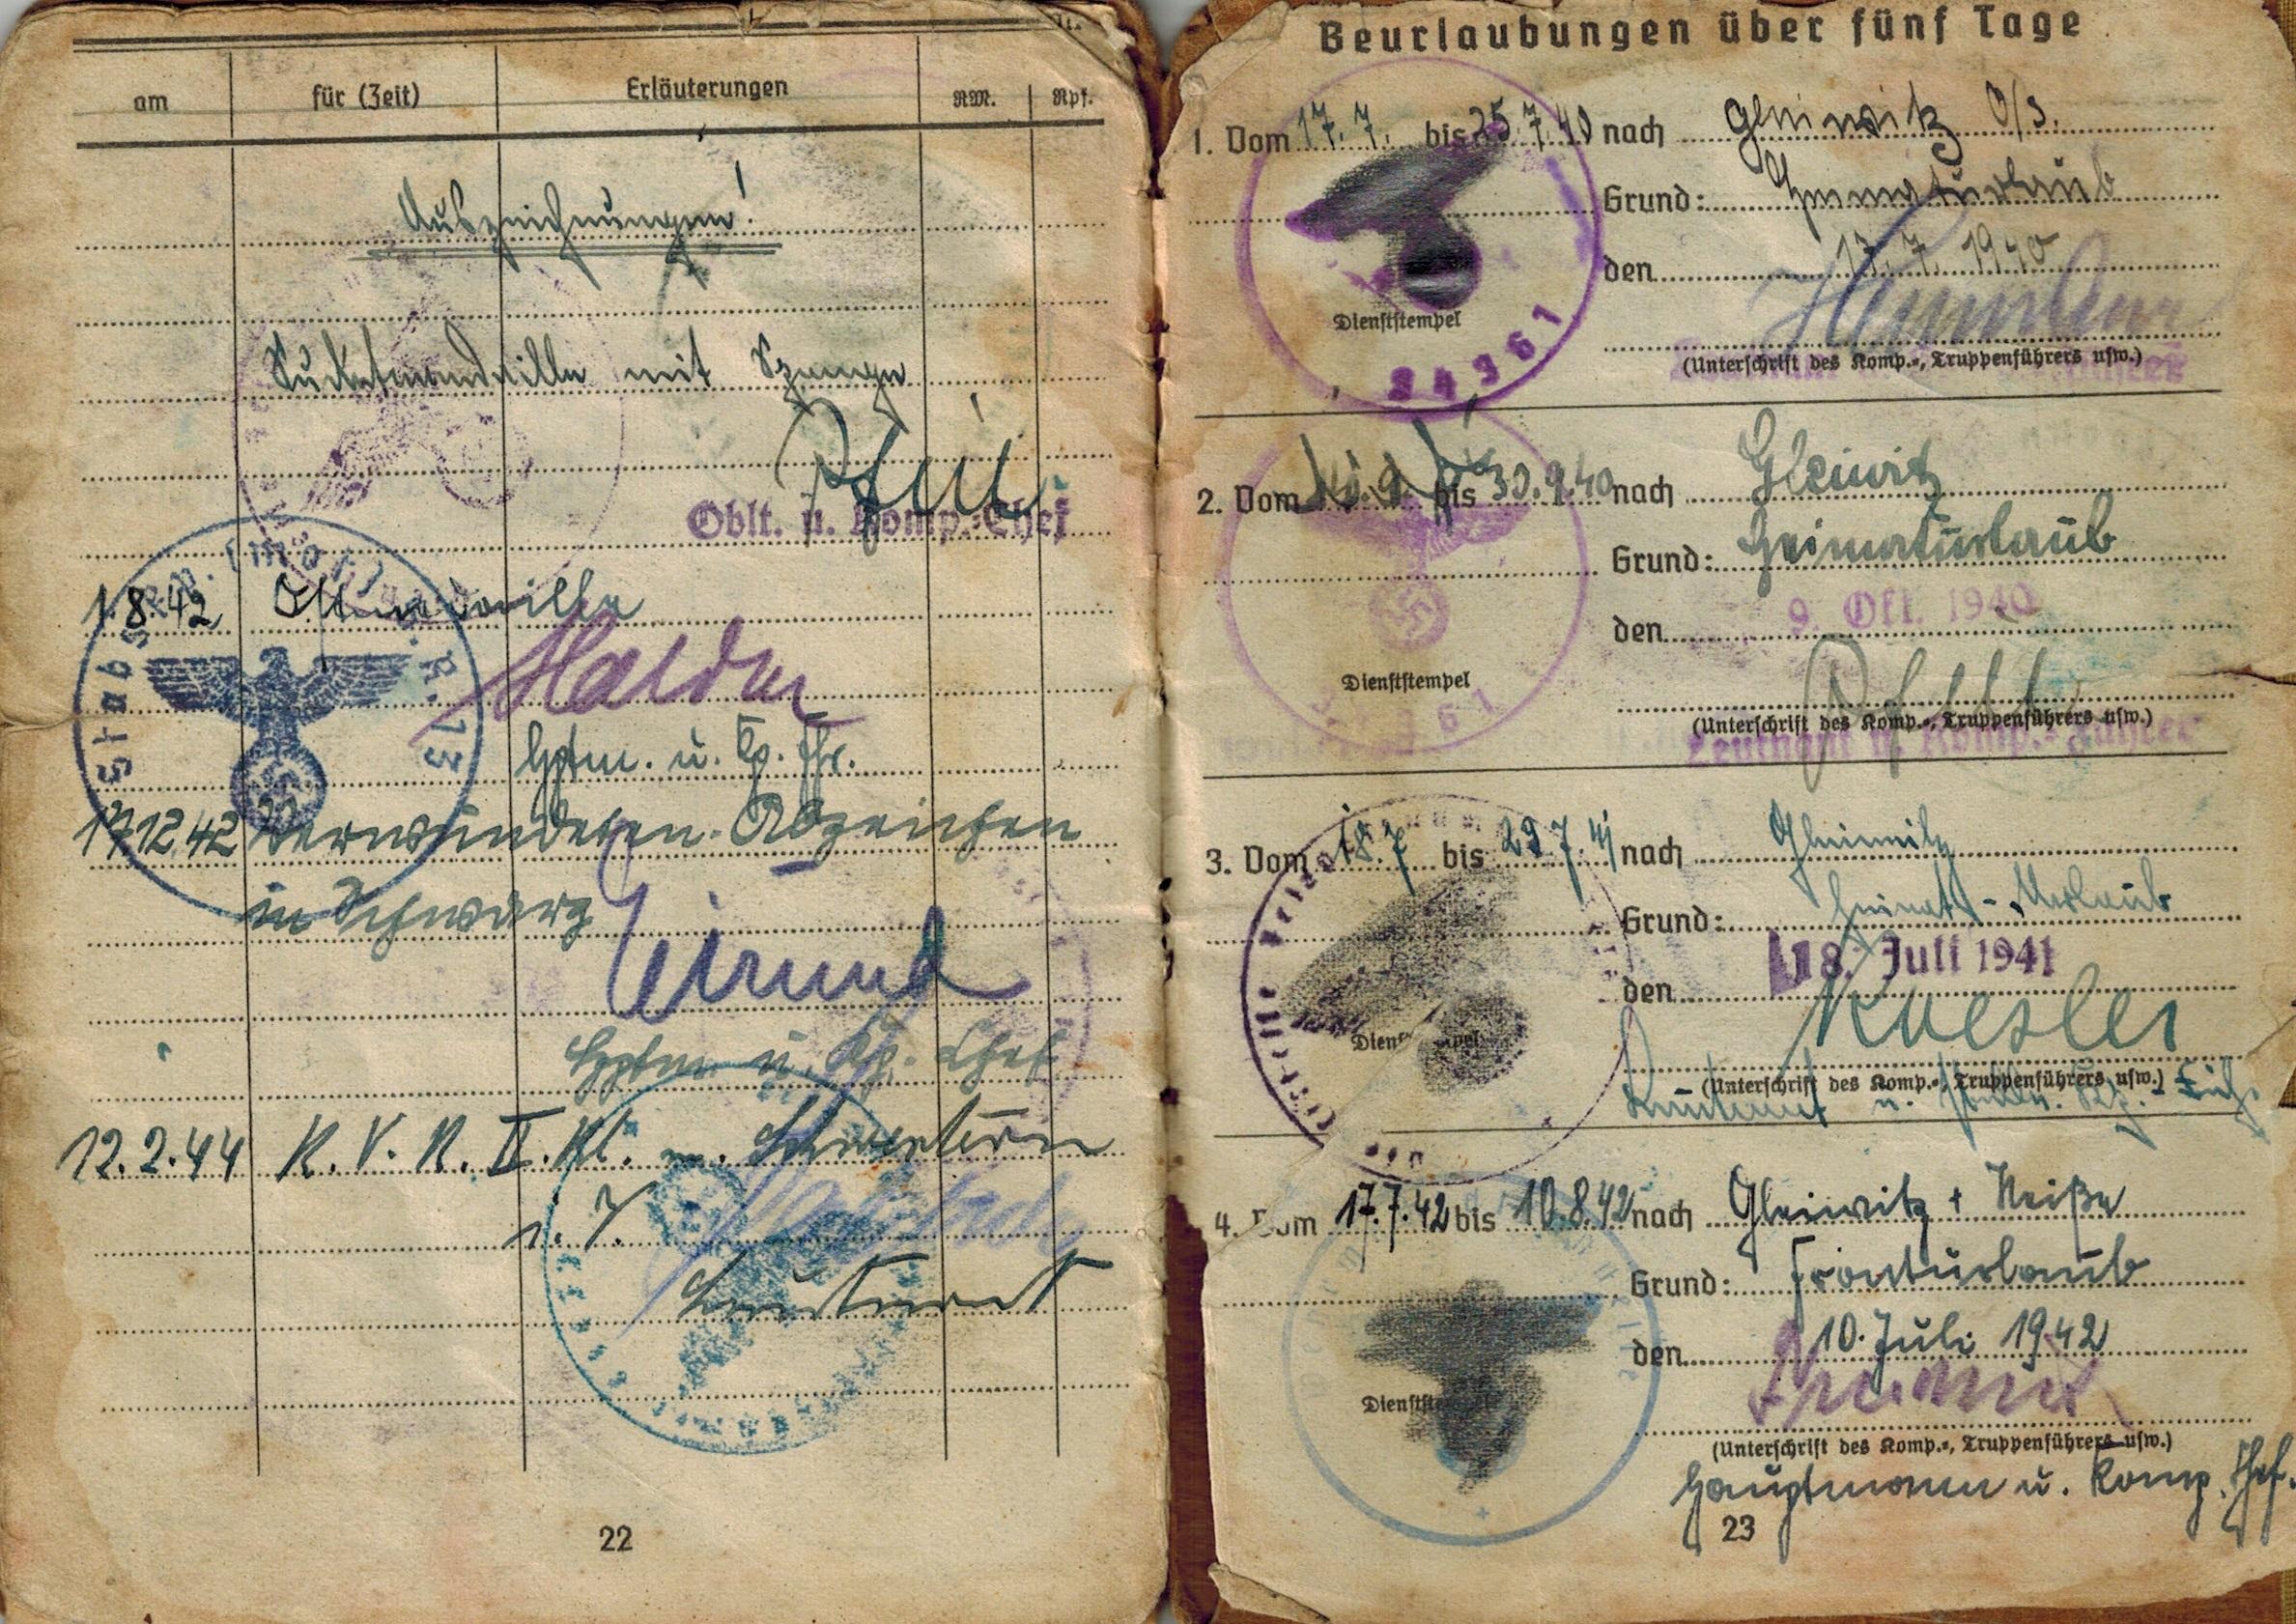 am für (Zeit) Erläuterungen RM. Rpf.
Auszeichnungen!
Sudetenmedaille mit Spange
Oblt. u. Komp.-Chef
1.8.42 Ostmedaille
Hptm. u. Kp. Fhr.
17.12.42 Verwundeten-Abzeichen
in Schwarz
Hptm. u. Kp. Chef
12.2.44 K.V.K. II. Kl. m. Schwertern
Leutnant
22
Beurlaubungen über fünf Tage
1. Vom 17.7. bis 25.7.40 nach Gleiwitz O/S.
Grund: Heimaturlaub
den 17.7.1940
Dienststempel
34361
(Unterschrift des Komp.-, Truppenführers usw.)
2. Vom bis 30.9.40 nach Gleiwitz
Grund: Heimaturlaub
den 9. Okt. 1940
Dienststempel
(Unterschrift des Komp.-, Truppenführers usw.)
Leutnant u. Komp.-Führer
3. Vom 18.7 bis 29.7.41 nach Gleiwitz
Grund: Heimat-Urlaub
den 18. Juli 1941
Dienststempel
Koesler
(Unterschrift des Komp.-, Truppenführers usw.)
Leutnant u.
4. Vom 17.7.42 bis 10.8.42 nach Gleiwitz + Neiße
Grund: Fronturlaub
den 10. Juli 1942
Dienststempel
(Unterschrift des Komp.-, Truppenführers usw.)
Hauptmann u. Komp. Chef.
23